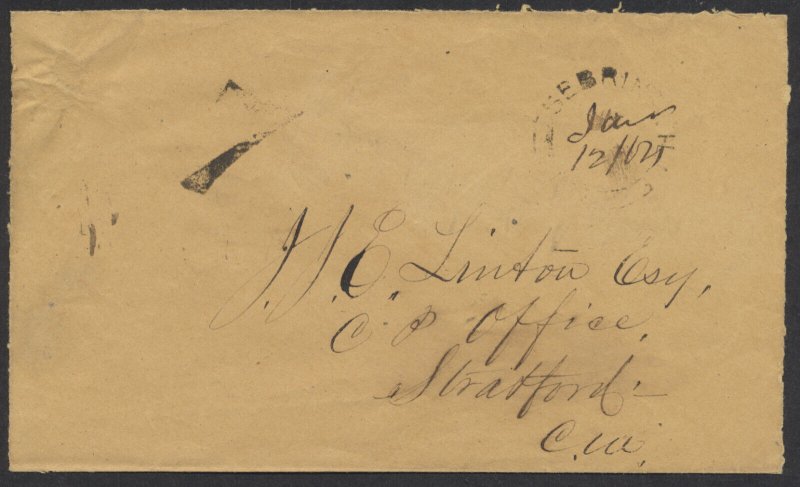 SEBRIN
Jan
12/62
7
J.J.E. Linton Esq,
C.P. Office,
Stratford
C.W.